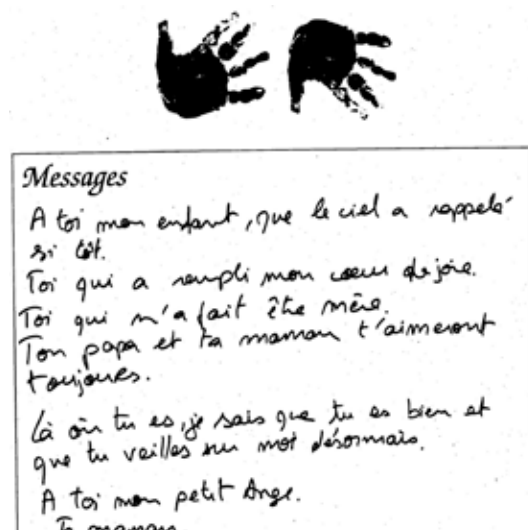 Messages
A toi mon enfant, que le ciel a rappelé
si tôt.
Toi qui a rempli mon coeur de joie.
Toi qui m'a fait être mère.
Ton papa et ta maman t'aimeront
toujours.
Là où tu es, je sais que tu es bien et
que tu veilles sur moi désormais.
A toi mon petit Ange.
Ta maman